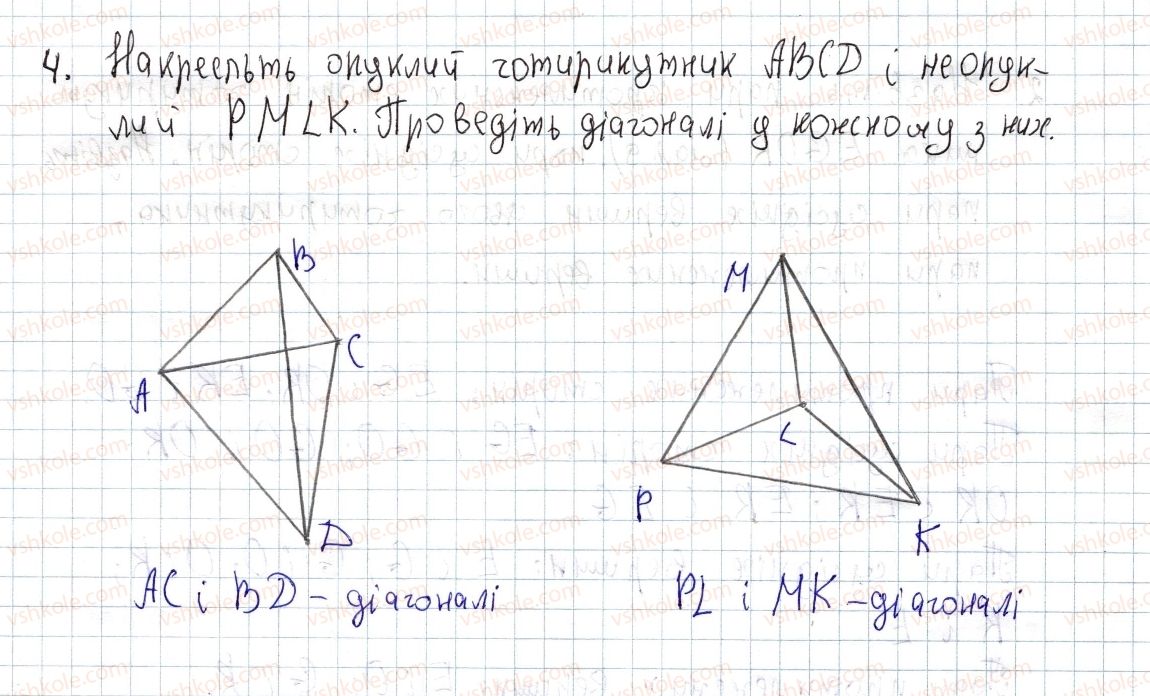 4. Накресльть опуклий чотирикутник ABCD і неопук-
лий PMLK. Проведіть діагоналі у кожному з них.
B
M
A
C
L
P
D
K
AC і BD – діагоналі
PL і MK – діагоналі
vshkole.com